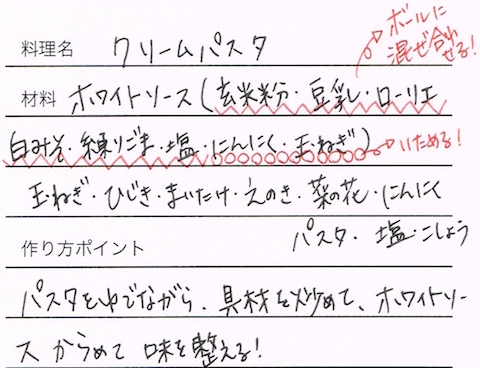 料理名 クリームパスタ
ボールに
混ぜ合わ
せる!
材料 ホワイトソース(玄米粉・豆乳・ローリエ
白みそ・練りごま・塩・にんにく・玉ねぎ)
いためる!
玉ねぎ・ひじき・まいたけ・えのき・菜の花・にんにく
パスタ・塩・こしょう
作り方ポイント
パスタをゆでながら、具材を炒めて、ホワイトソー
ス からめて 味を整える!